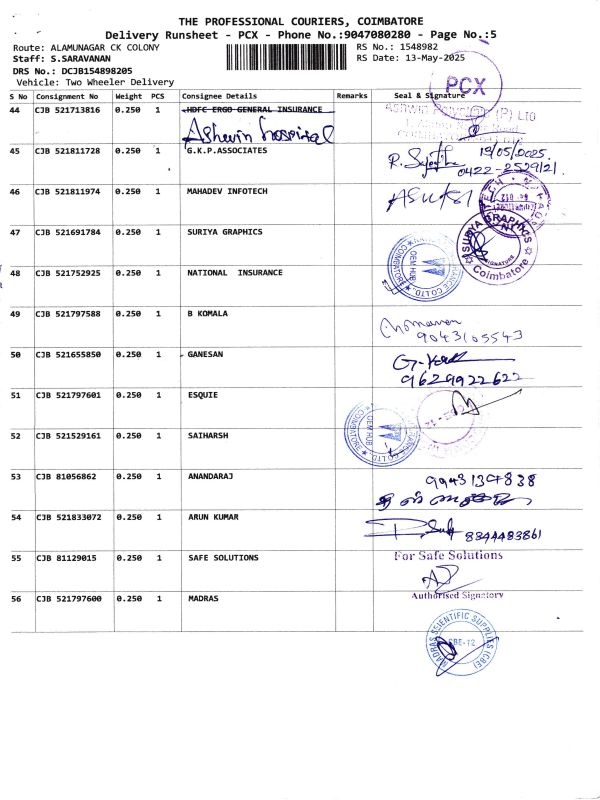 THE PROFESSIONAL COURIERS, COIMBATORE
Delivery Runsheet - PCX - Phone No.:9047080280 - Page No.:5
Route: ALAMUNAGAR CK COLONY RS No.: 1548982
Staff: S.SARAVANAN RS Date: 13-May-2025
DRS No.: DCJB154898205
Vehicle: Two Wheeler Delivery
PCX
S No Consignment No Weight PCS Consignee Details Remarks Seal & Signature
44 CJB 521713816 0.250 1 HDFC ERGO GENERAL INSURANCE
Ashwin hospital
45 CJB 521811728 0.250 1 G.K.P.ASSOCIATES 19/05/2025
0422-2529121
46 CJB 521811974 0.250 1 MAHADEV INFOTECH
47 CJB 521691784 0.250 1 SURIYA GRAPHICS
SURIYA GRAPHICS
SIGNATURE
Coimbatore
48 CJB 521752925 0.250 1 NATIONAL INSURANCE
COIMBATORE OEM HUB CO LTD
49 CJB 521797588 0.250 1 B KOMALA
9043105543
50 CJB 521655850 0.250 1 GANESAN
9629922622
51 CJB 521797601 0.250 1 ESQUIE
52 CJB 521529161 0.250 1 SAIHARSH
COIMBATORE OEM HUB CO LTD
53 CJB 81056862 0.250 1 ANANDARAJ 9943134838
54 CJB 521833072 0.250 1 ARUN KUMAR 8844483861
55 CJB 81129015 0.250 1 SAFE SOLUTIONS For Safe Solutions
Authorised Signatory
56 CJB 521797600 0.250 1 MADRAS
MADRAS SCIENTIFIC SUPPLIES (CBE)
CBE-12